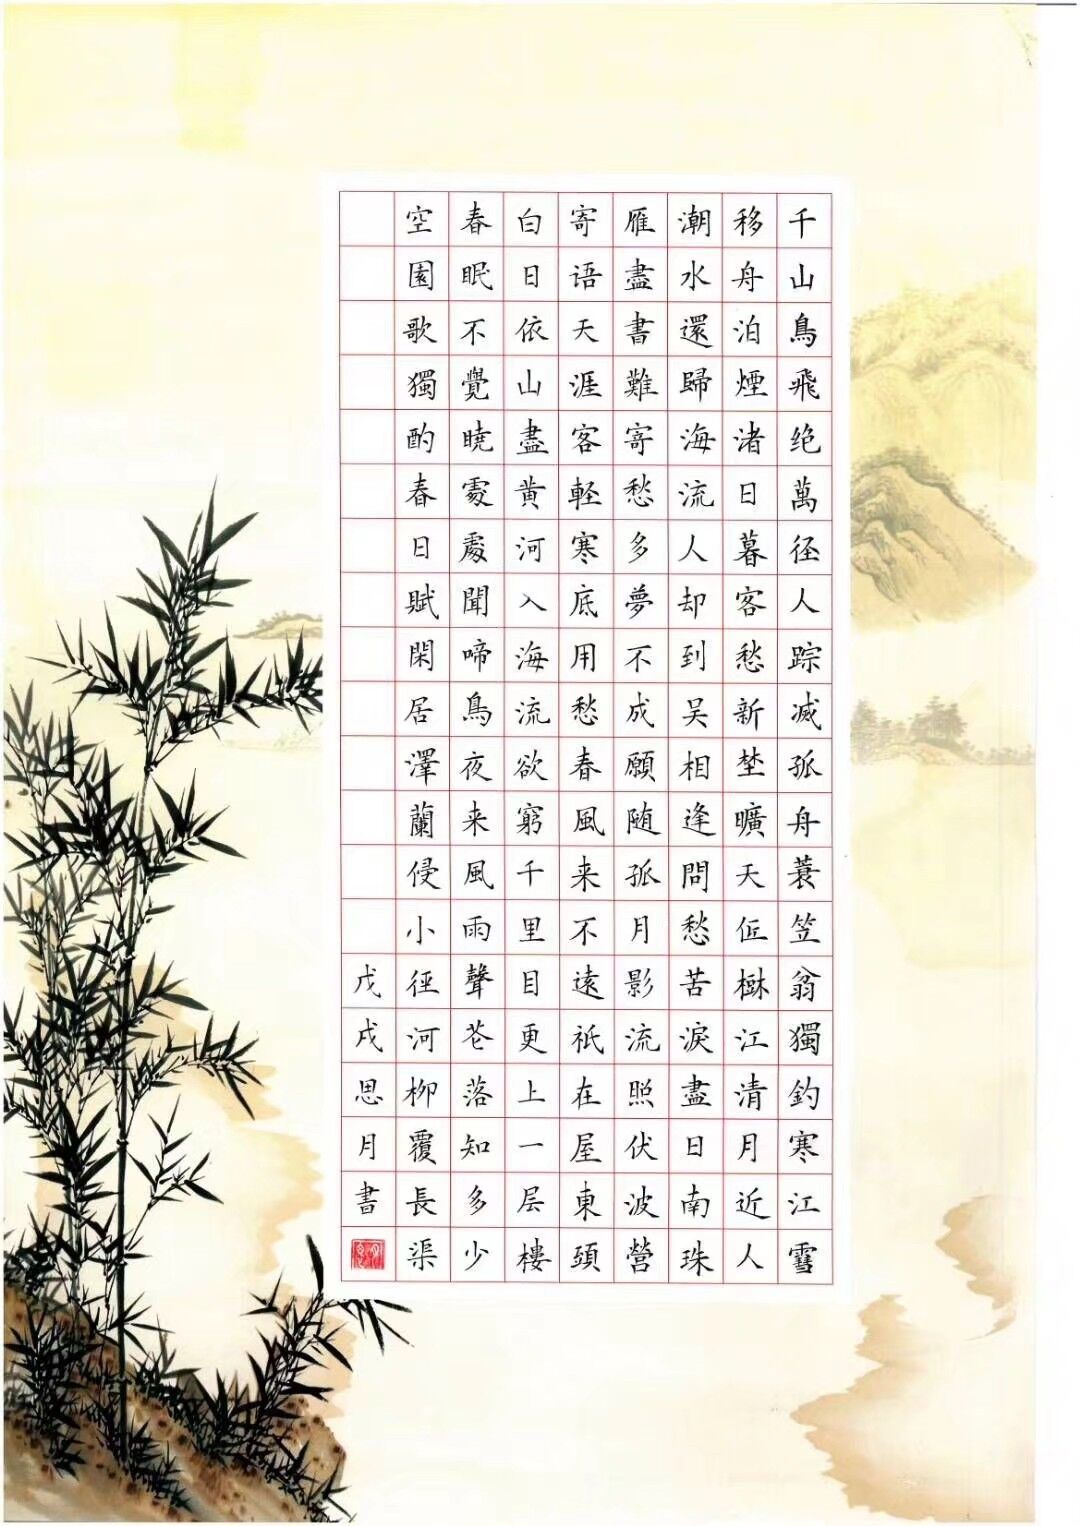 千山鳥飛绝萬径人踪滅孤舟蓑笠翁獨釣寒江雪
移舟泊煙渚日暮客愁新埜曠天低樹江清月近人
潮水還歸海流人却到吴相逢問愁苦淚盡日南珠
雁盡書難寄愁多夢不成願随孤月影流照伏波營
寄语天涯客軽寒底用愁春風来不遠祇在屋東頭
白日依山盡黄河入海流欲窮千里目更上一层樓
春眠不覺暁處處聞啼鳥夜来風雨聲花落知多少
空園歌獨酌春日賦閑居澤蘭侵小徑河柳覆長渠
戊戌思月書